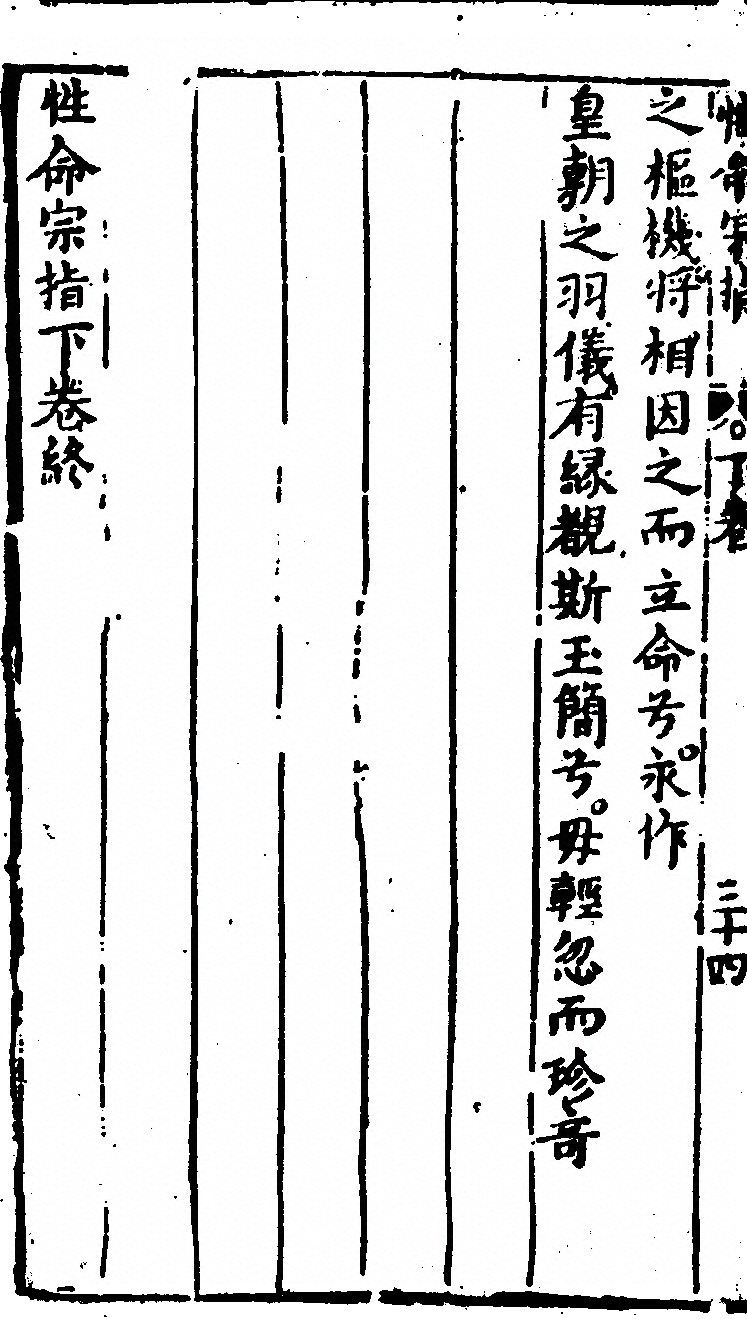 性命宗指 下卷 三十四
之樞機將相因之而立命兮。永作
皇朝之羽儀有緣觀斯玉簡兮。毋輕忽而珍哥
性命宗指下卷終